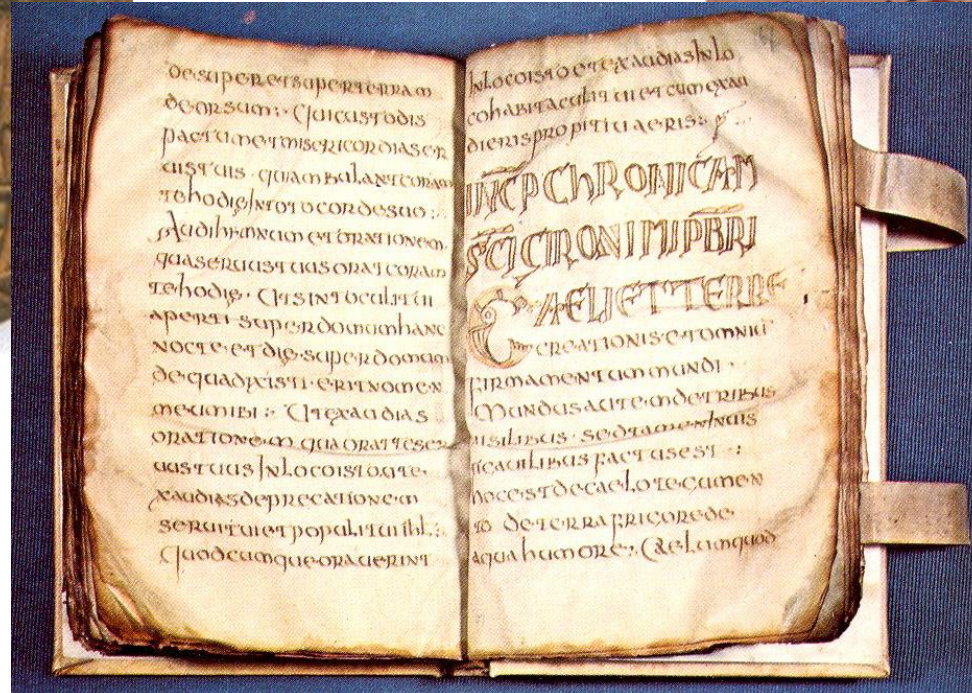 desuper et super terram
deorsum : Qui custodis
pactum et misericordias ser
uis tuis · qui ambulant coram
te hodie In toto corde suo :
Audi hymnum et orationem
qua seruus tuus orat coram
te hodie · Ut sint oculi tui
aperti super domum hanc
nocte · et die · super domum
de qua dixisti · erit nomen
meum ibi : Ut exaudias
orationem qua orat te ser
uus tuus In loco isto ut e
xaudias deprecationem
serui tui et populi tui isl :
Quodcumque orauerint
In loco isto et exaudias In lo
co habitaculi tui et cum exau
dieris propitiaueris :
INCP CHRONICAM
SCI GIRONIMI PBRI
CAELI ET TERRE
CREATIONIS ET OMNIU
firmamentum mundi ·
Mundus autem de tribus
uisilibus · sed tamen Inuis
factus est :
hoc est de caelo tecumen
to de terra fricore de
aqua humore : Caelum quod